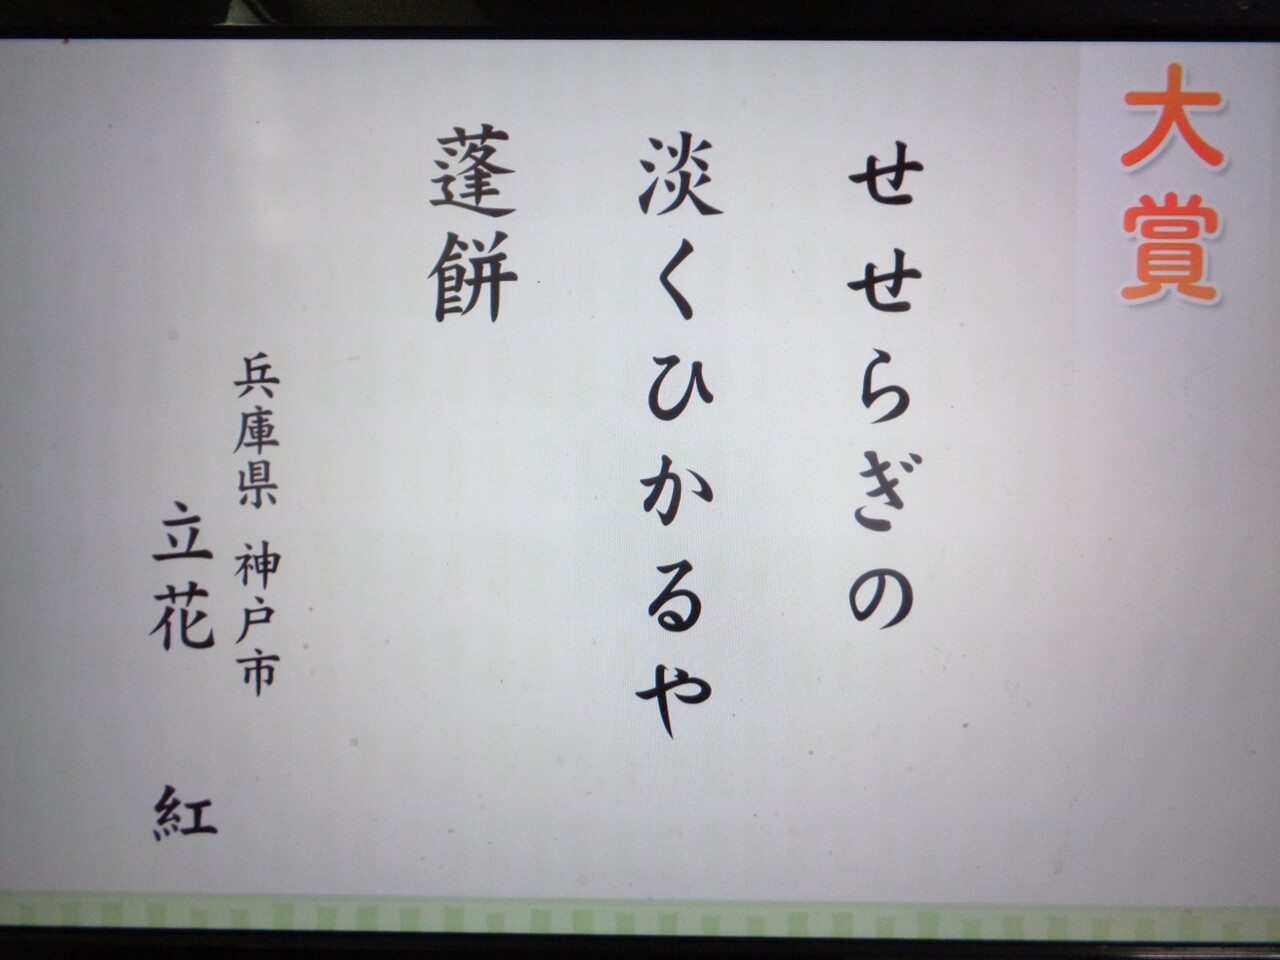 大賞
せせらぎの
淡くひかるや
蓬餅
兵庫県 神戸市
立花 紅